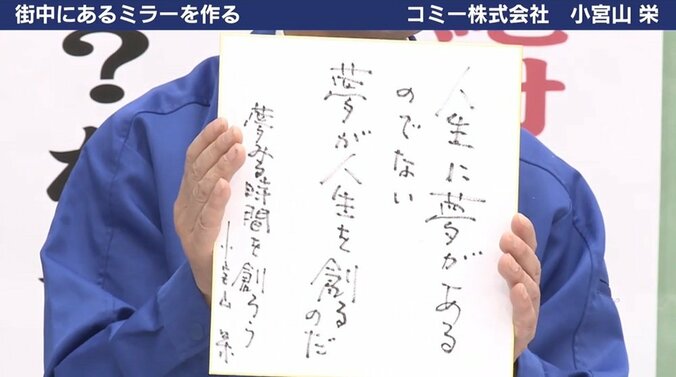 街中にあるミラーを作る
コミー株式会社 小宮山 栄
人生に夢がある
のでない
夢が人生を創る
のだ
夢みる時間を創ろう
小宮山 栄
？